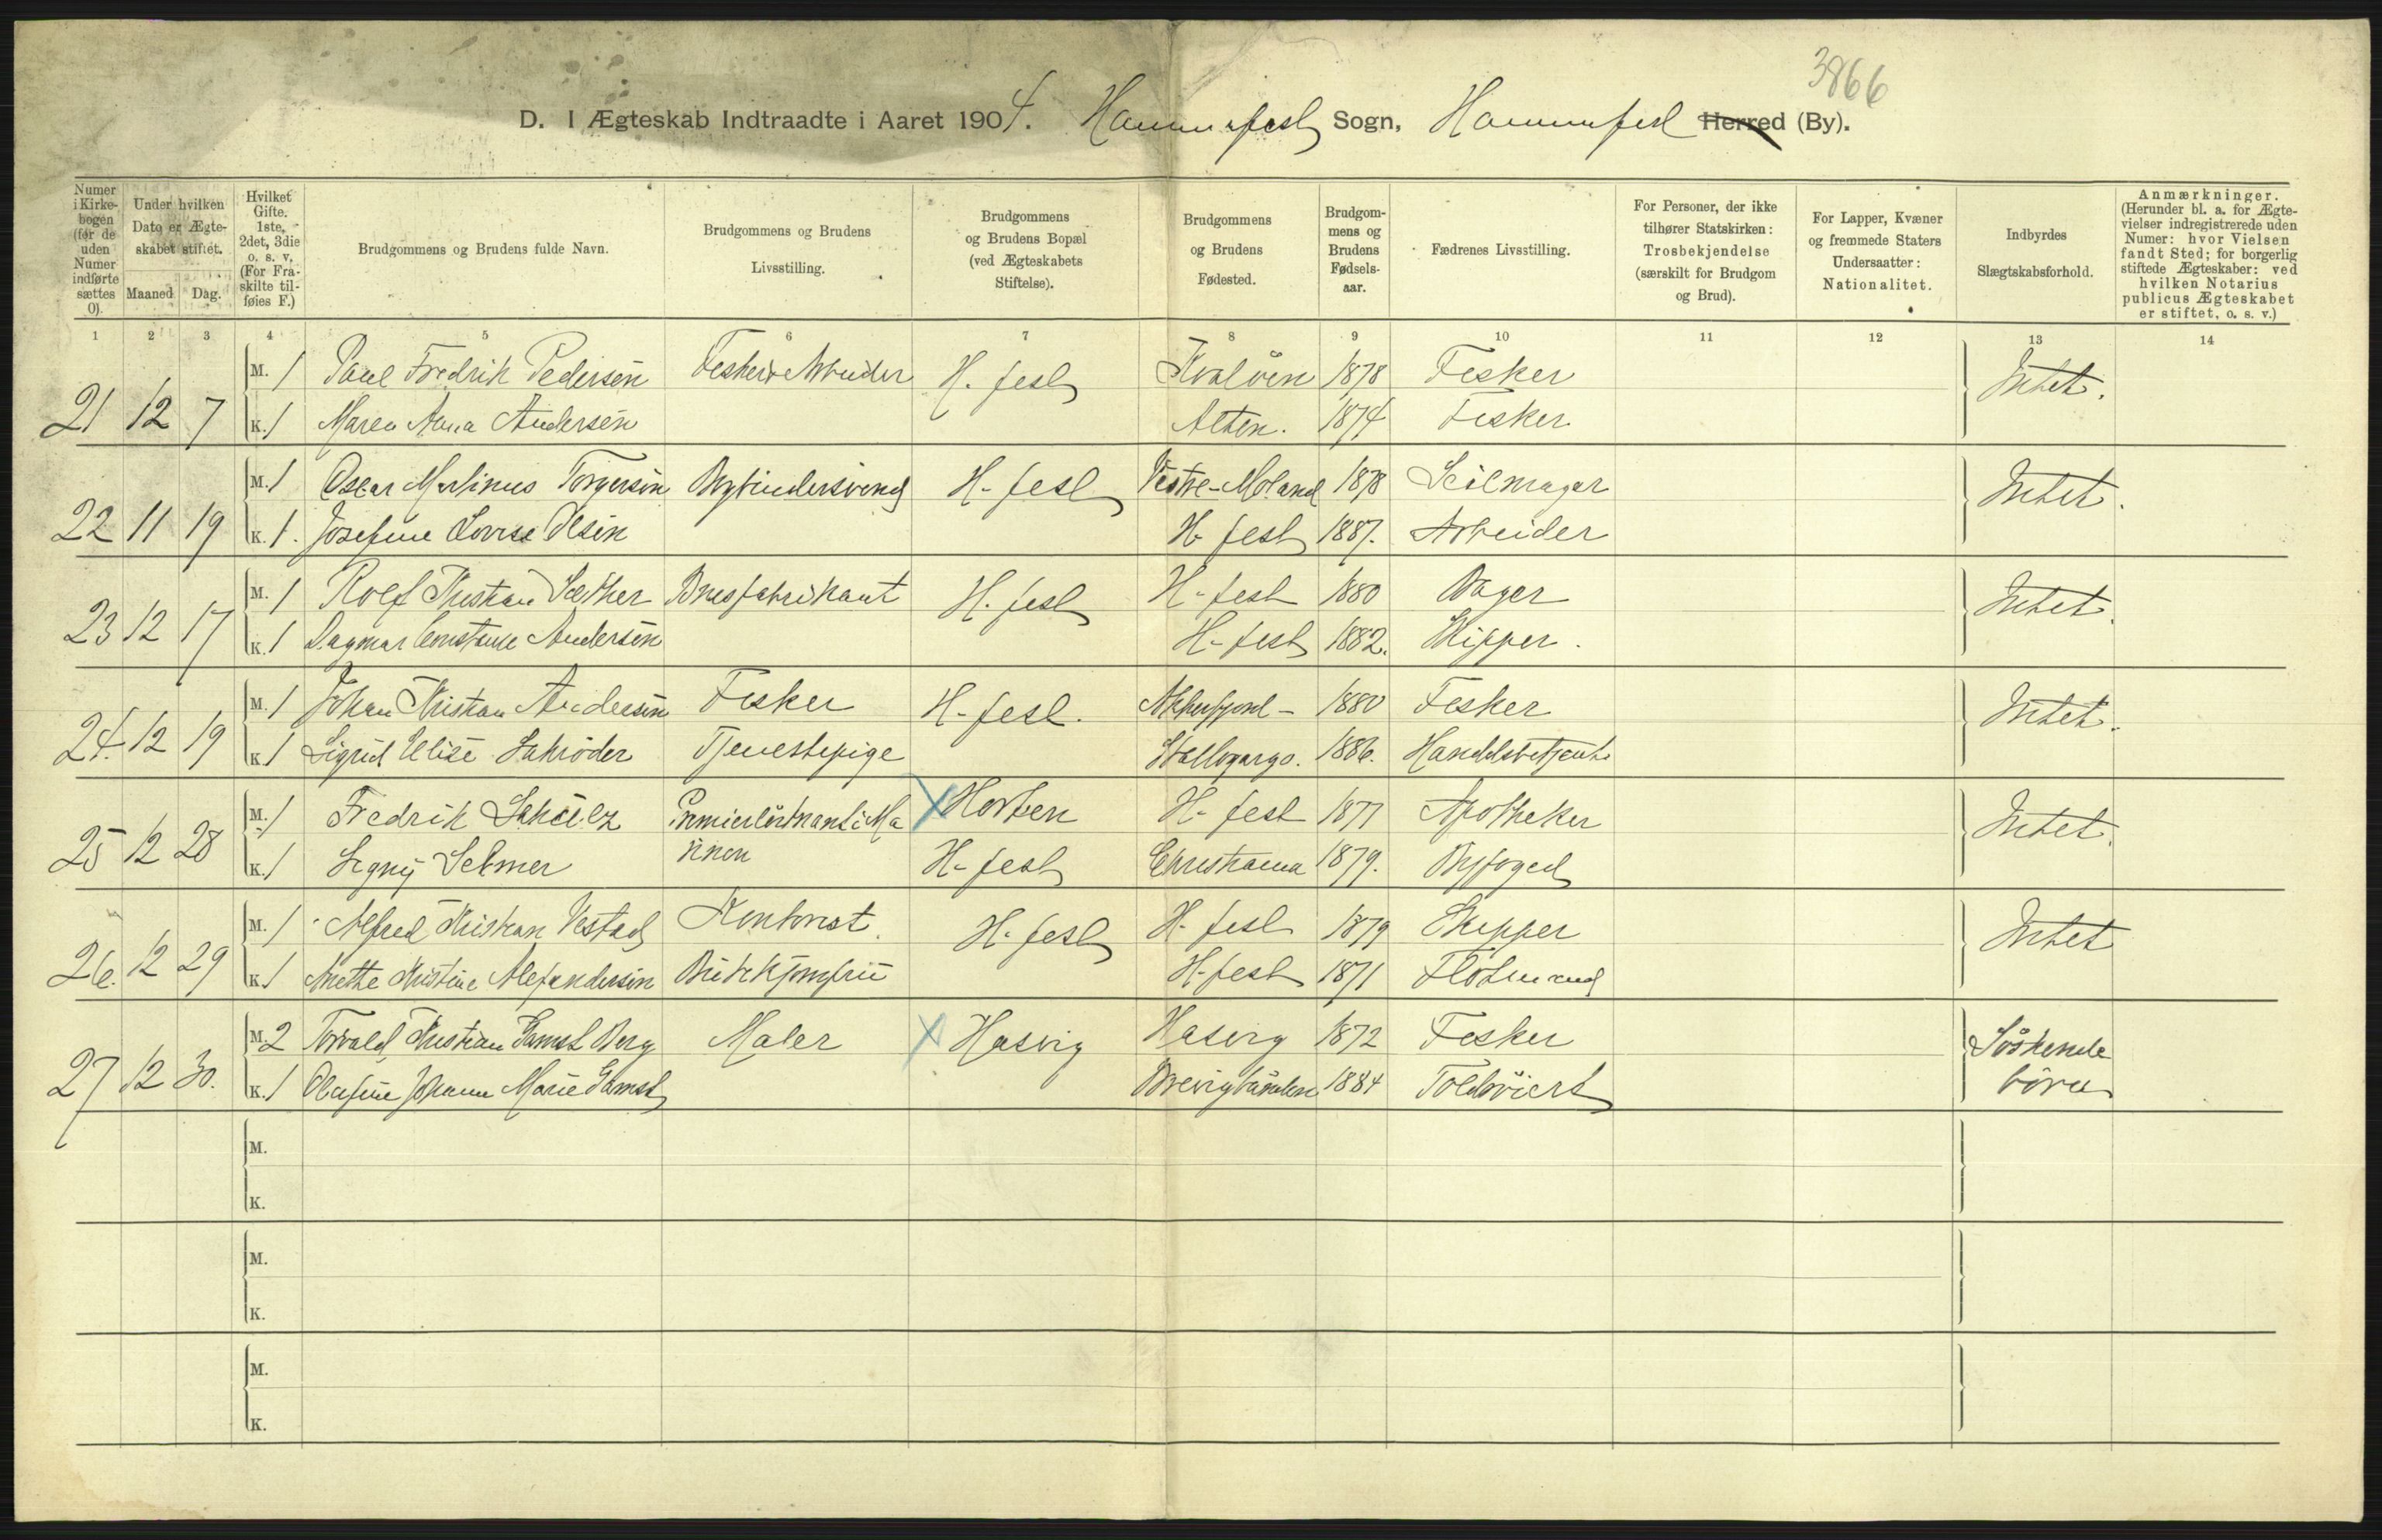 3866
D. I Ægteskab Indtraadte i Aaret 1904. Hammerfest Sogn, Hammerfest Herred (By).
Numer i Kirkebogen (før de uden Numer indførte sættes 0).
Under hvilken Dato er Ægteskabet stiftet.
Maaned Dag.
Hvilket Gifte. 1ste, 2det, 3die o. s. v. (For Fraskilte tilføies F.)
Brudgommens og Brudens fulde Navn.
Brudgommens og Brudens Livsstilling.
Brudgommens og Brudens Bopæl (ved Ægteskabets Stiftelse).
Brudgommens og Brudens Fødested.
Brudgommens og Brudens Fødselsaar.
Fædrenes Livsstilling.
For Personer, der ikke tilhører Statskirken: Trosbekjendelse (særskilt for Brudgom og Brud).
For Lapper, Kvæner og fremmede Staters Undersaatter: Nationalitet.
Indbyrdes Slægtskabsforhold.
Anmærkninger. (Herunder bl. a. for Ægtevielser indregistrerede uden Numer: hvor Vielsen fandt Sted; for borgerlig stiftede Ægteskaber: ved hvilken Notarius publicus Ægteskabet er stiftet, o. s. v.)
1 2 3 4 5 6 7 8 9 10 11 12 13 14
21 12 7 M. 1 Paul Fredrik Pedersen H. fest Kvaløen 1878 Fisker Intet.
K. 1 Maren Anna Andersen Alten. 1874 Fisker
22 11 19 M. 1 Oscar Martinus Torgersen Bogbindersvend H-fest Vestre-Moland 1878 Seilmager Intet.
K. 1. Josefine Lovise Olsen H-fest 1887. Arbeider
23 12 17 M. 1 Rolf Kristian Brusfabrikant H. fest H-fest 1880 Bager Intet.
K. 1 Dagmar Constance Andersen H-fest 1882. Skipper.
24. 12 19 M. 1 Johan Kristian Andersen Fisker H-fest. Akkerfjord- 1880 Fisker Intet.
K. 1 Sigrid Elise Schrøder Tjenestepige 1886. Handelsbetjent
25 12 28 M. 1 Fredrik Premierløitnant i Ma X Horten H-fest 1877 Apotheker Intet.
K. 1 Signy Selmer rinen H-fest Christiania 1879. Byfoged
26. 12 29 M. 1 Alfred Kristian Vestad Kontorist. H. fest H. fest 1879 Skipper Intet
K. 1 Anette Kristine Alexandersen Butikjomfru H-fest 1871
27 12 30. M. 2 Torvald Kristian Gamst Berg Maler X Hasvig Hasvig 1872 Fisker Søskende
K. 1 Olufine Johanne Marie Gamst 1884 børn
M.
K.
M.
K.
M.
K.